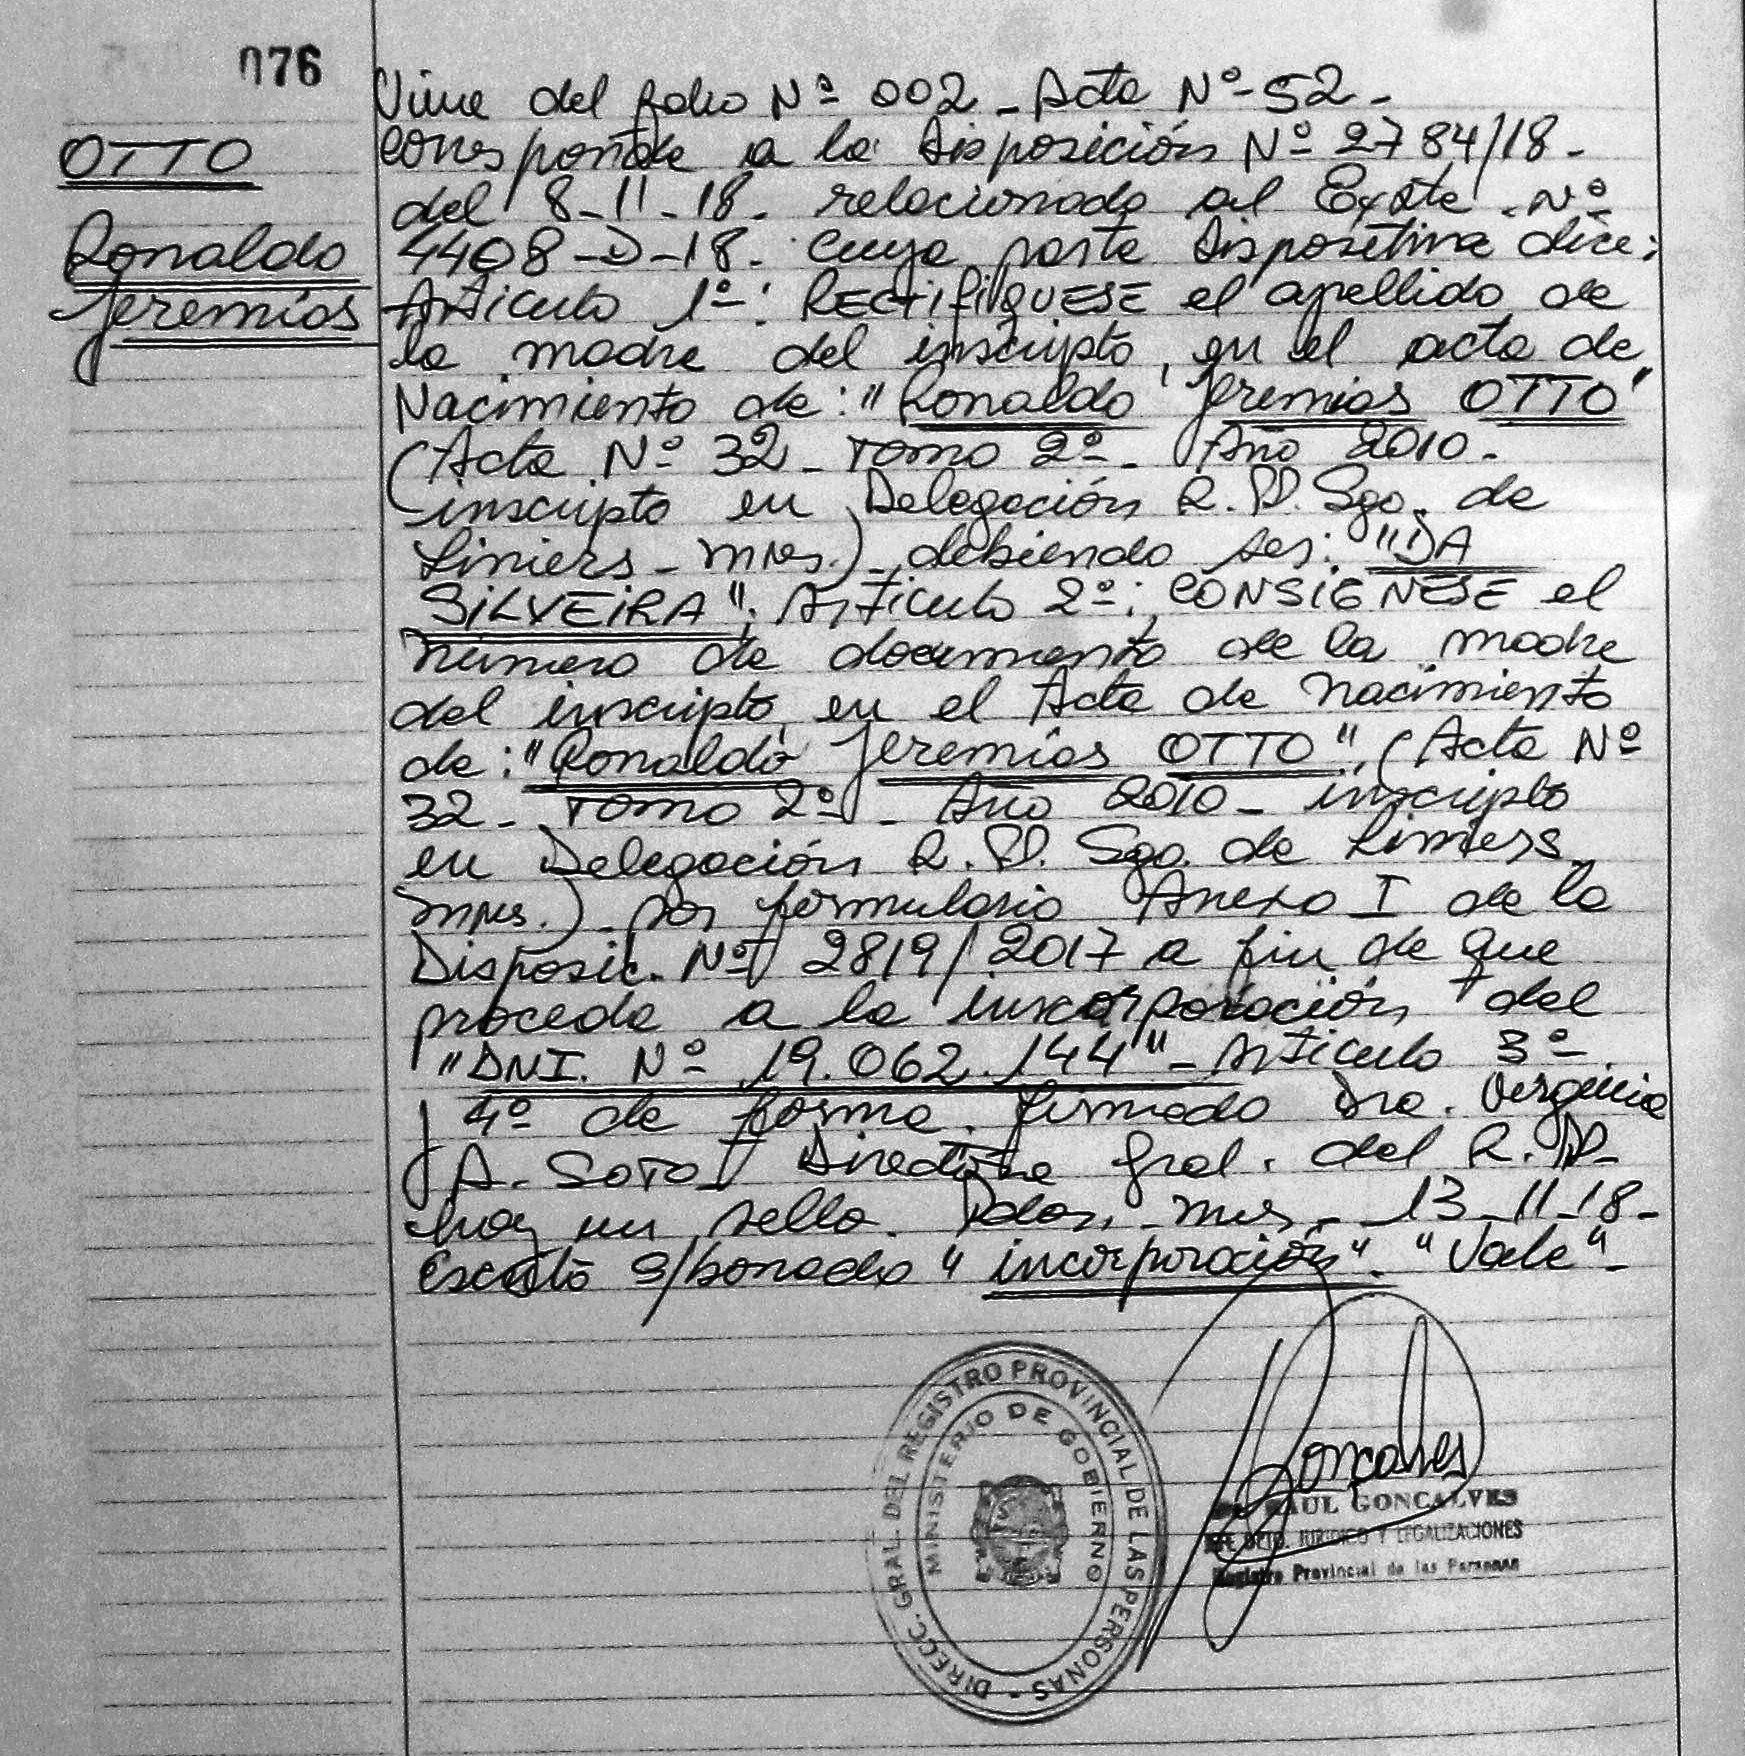 076
OTTO
Ronaldo
Jeremías
Viene del folio Nº 002 - Acta Nº 52 -
corresponde a la Disposición Nº 2784/18 -
del 8-11-18. relacionado al Expte. Nº
4408-D-18. cuya parte dispositiva dice:
Artículo 1º: RECTIFIQUESE el apellido de
la madre del inscripto, en el acta de
Nacimiento de: "Ronaldo Jeremías OTTO"
(Acta Nº 32 - Tomo 2º - Año 2010 -
inscripto en Delegación R.P.P. Sgo. de
Liniers - Mnes.) - debiendo ser: "DA
SILVEIRA". Artículo 2º: CONSIGNESE el
número de documento de la madre
del inscripto, en el Acta de nacimiento
de: "Ronaldo Jeremías OTTO", (Acta Nº
32 - Tomo 2º - Año 2010 - inscripto
en Delegación R.P.P. Sgo. de Liniers -
Mnes.) - por formulario Anexo I de la
Disposic. Nº 2819/2017 a fin de que
proceda a la incorporación del
"DNI. Nº 19.062.144" - Artículo 3º
y 4º de forma. firmado Dra. Virginia
A. SOTO - Directora Gral. del R.P.P.
hay un sello. Pdas. - Mnes. - 13-11-18 -
Escrito s/borrado "incorporación". "Vale" -
DIRECC. GRAL. DEL REGISTRO PROVINCIAL DE LAS PERSONAS -
MINISTERIO DE GOBIERNO
Goncalves
RAUL GONCALVES
JEFE DPTO. JURIDICO Y LEGALIZACIONES
Registro Provincial de las Personas